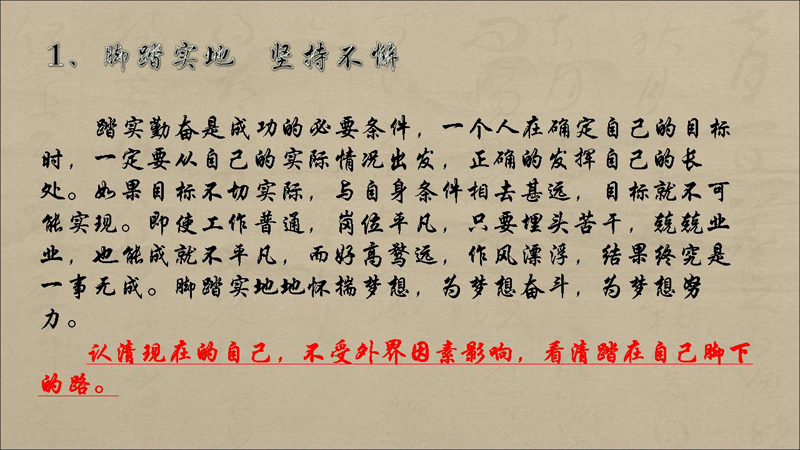 1、脚踏实地 坚持不懈
踏实勤奋是成功的必要条件，一个人在确定自己的目标
时，一定要从自己的实际情况出发，正确的发挥自己的长
处。如果目标不切实际，与自身条件相去甚远，目标就不可
能实现。即使工作普通，岗位平凡，只要埋头苦干，兢兢业
业，也能成就不平凡，而好高骛远，作风漂浮，结果终究是
一事无成。脚踏实地地怀揣梦想，为梦想奋斗，为梦想努
力。
认清现在的自己，不受外界因素影响，看清踏在自己脚下
的路。